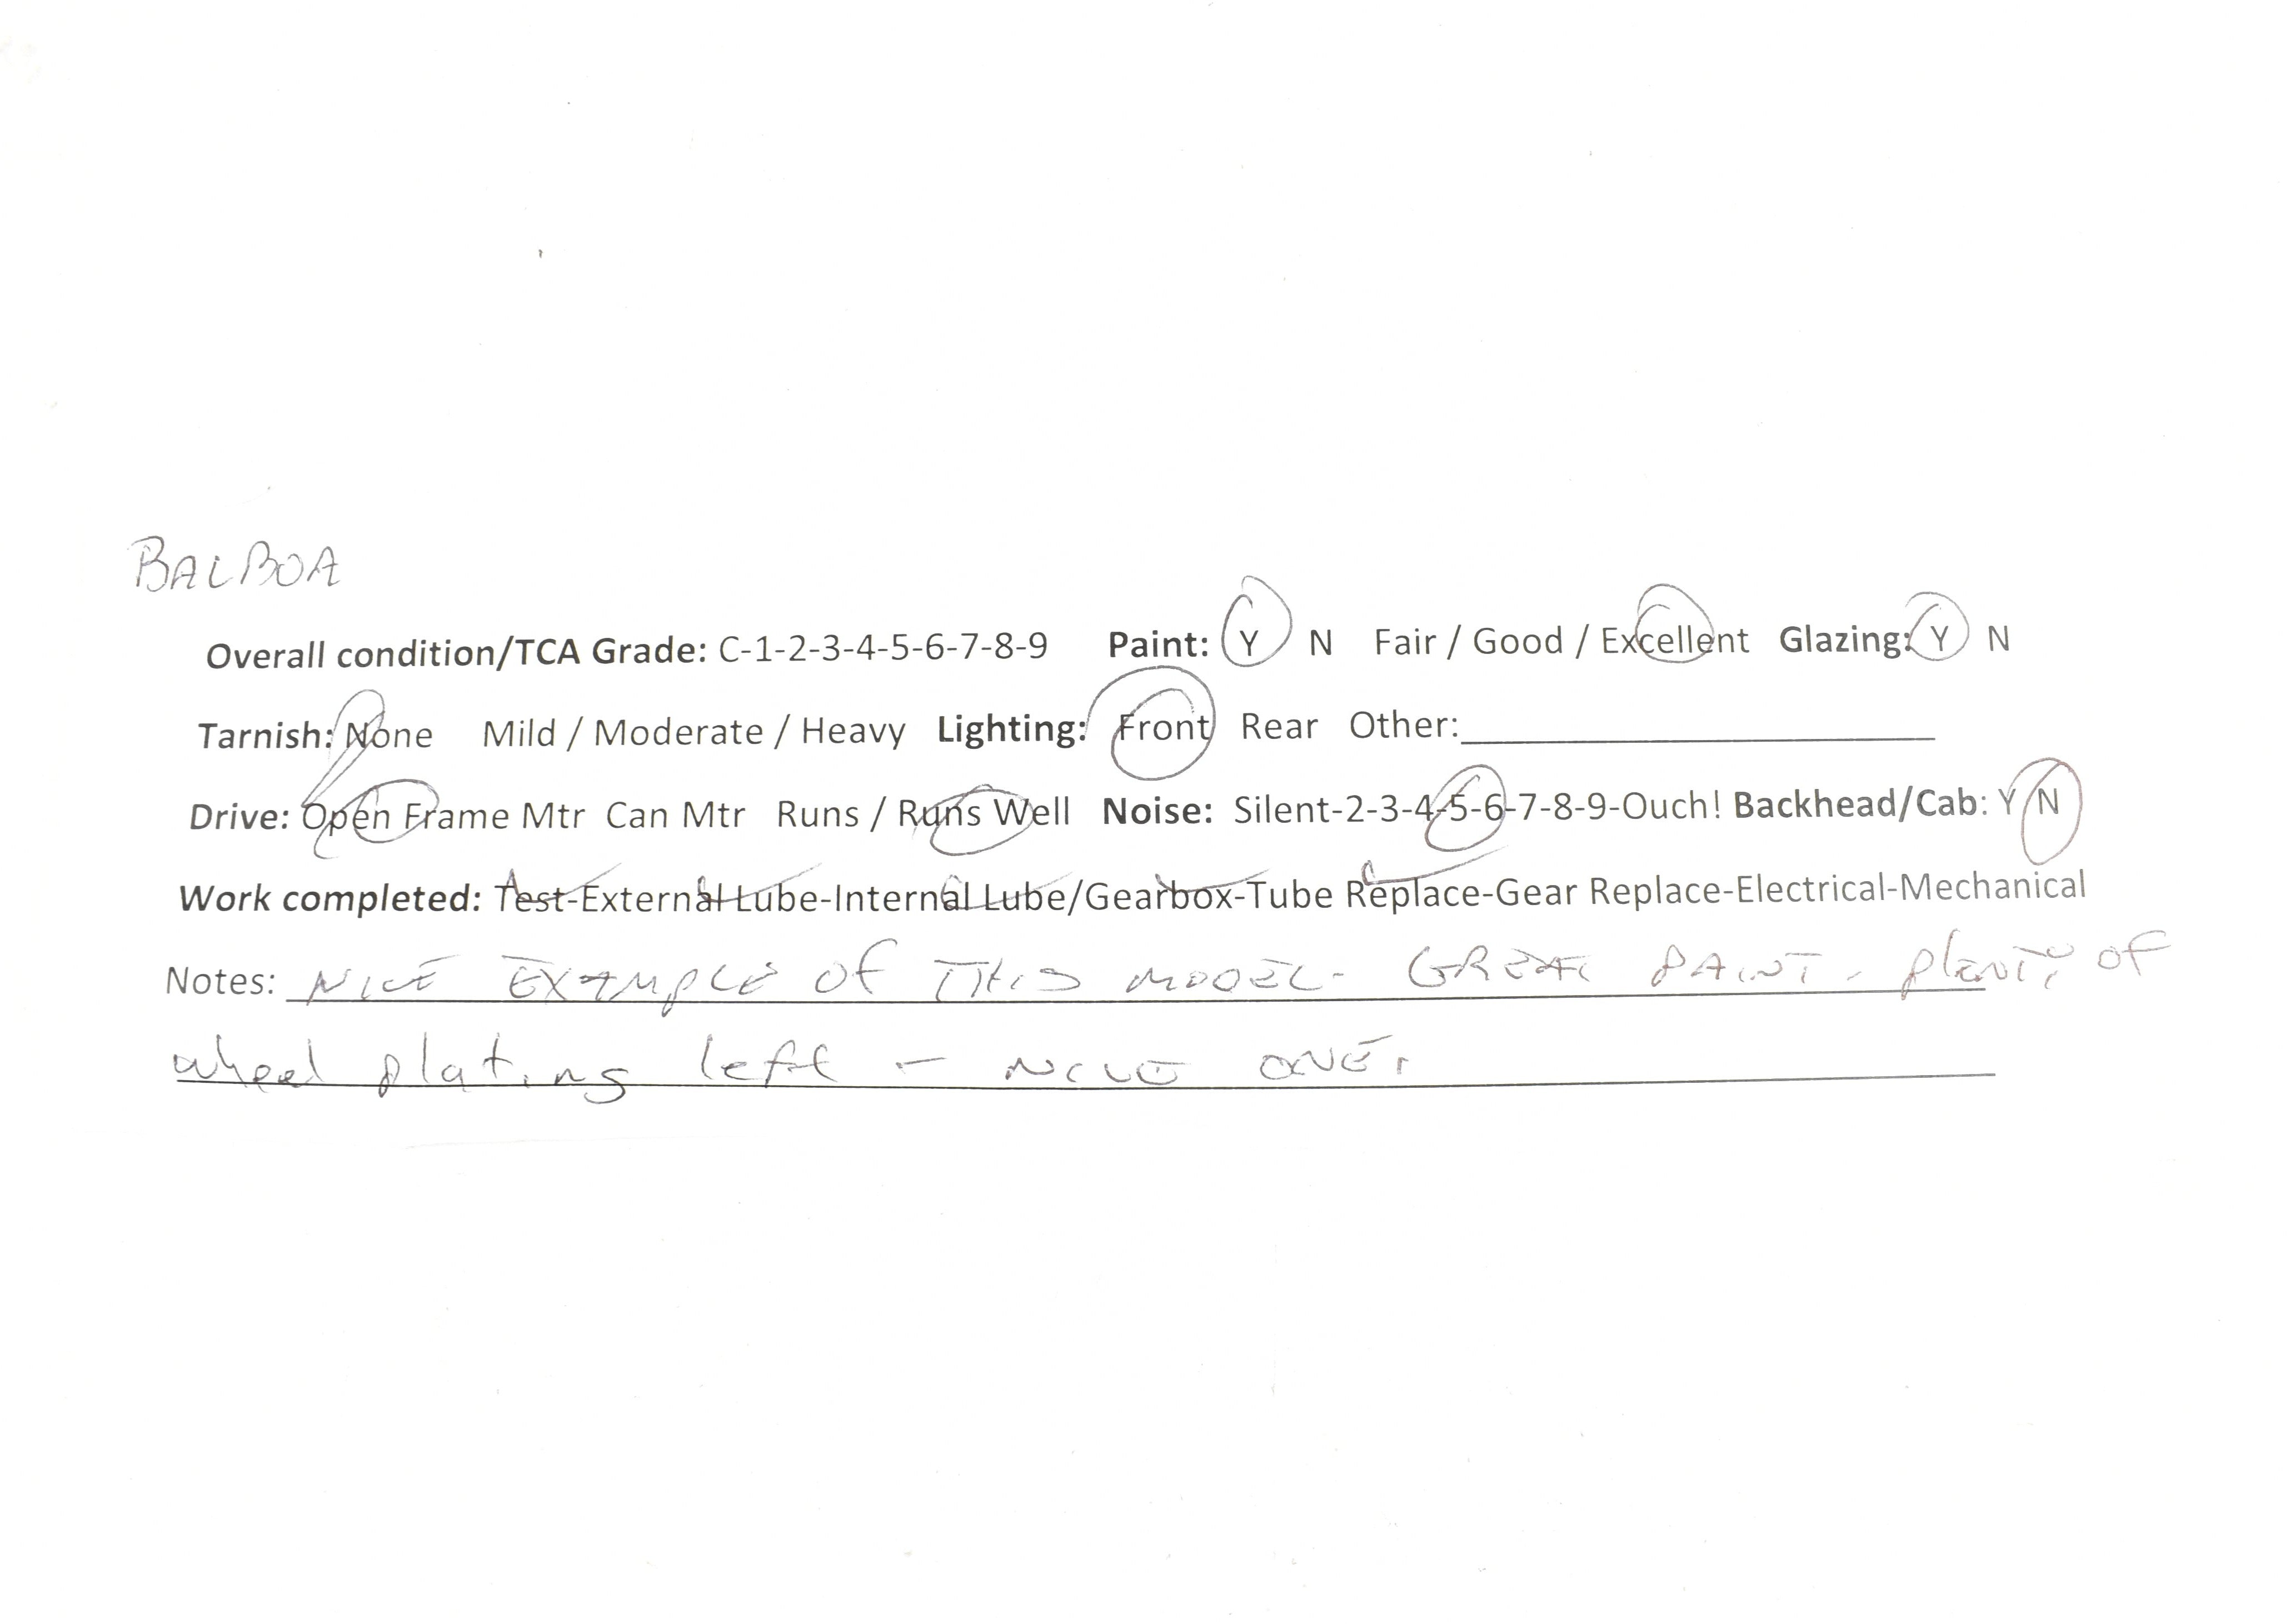 BALBOA
Overall condition/TCA Grade: C-1-2-3-4-5-6-7-8-9 Paint: Y N Fair / Good / Excellent Glazing: Y N
Tarnish: None Mild / Moderate / Heavy Lighting: Front Rear Other:
Drive: Open Frame Mtr Can Mtr Runs / Runs Well Noise: Silent-2-3-4-5-6-7-8-9-Ouch! Backhead/Cab: Y N
Work completed: Test-External Lube-Internal Lube/Gearbox-Tube Replace-Gear Replace-Electrical-Mechanical
Notes: NICE EXAMPLE of THIS MODEL- GREAT PAINT. Plenty of
wheel plating left - NICE ONE.